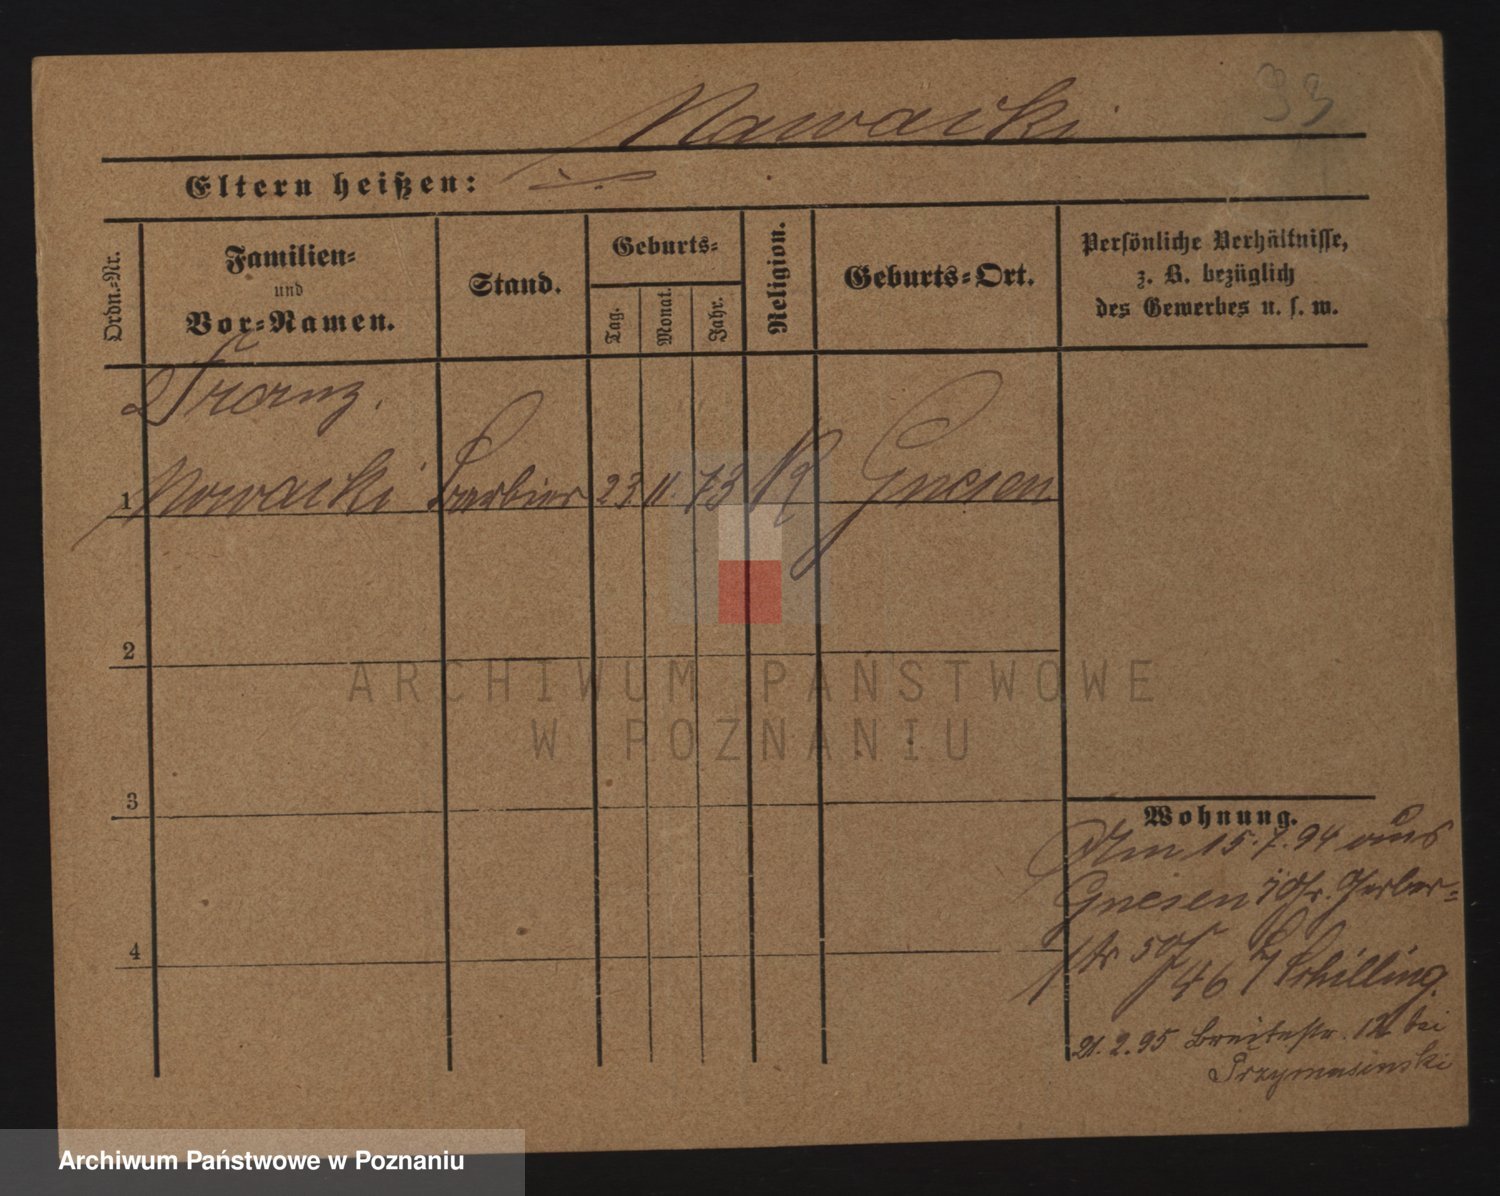 Nawacki
93
Eltern heißen:
Ordn.-Nr.
Familien-
und
Vor-Namen.
Stand.
Geburts-
Tag.
Monat.
Jahr.
Religion.
Geburts-Ort.
Persönliche Verhältnisse,
z. B. bezüglich
des Gewerbes u. s. w.
Franz.
1 Nowacki Barbier 23. 11. 73 K Gnesen
2
3
4
Wohnung.
Am 15.7.94 aus
Gnesen Gr. Gerber-
str 50
46 Schilling.
21.2.95 Breitestr. 12 bei
Przymusinski
ARCHIWUM PAŃSTWOWE
W POZNANIU
Archiwum Państwowe w Poznaniu